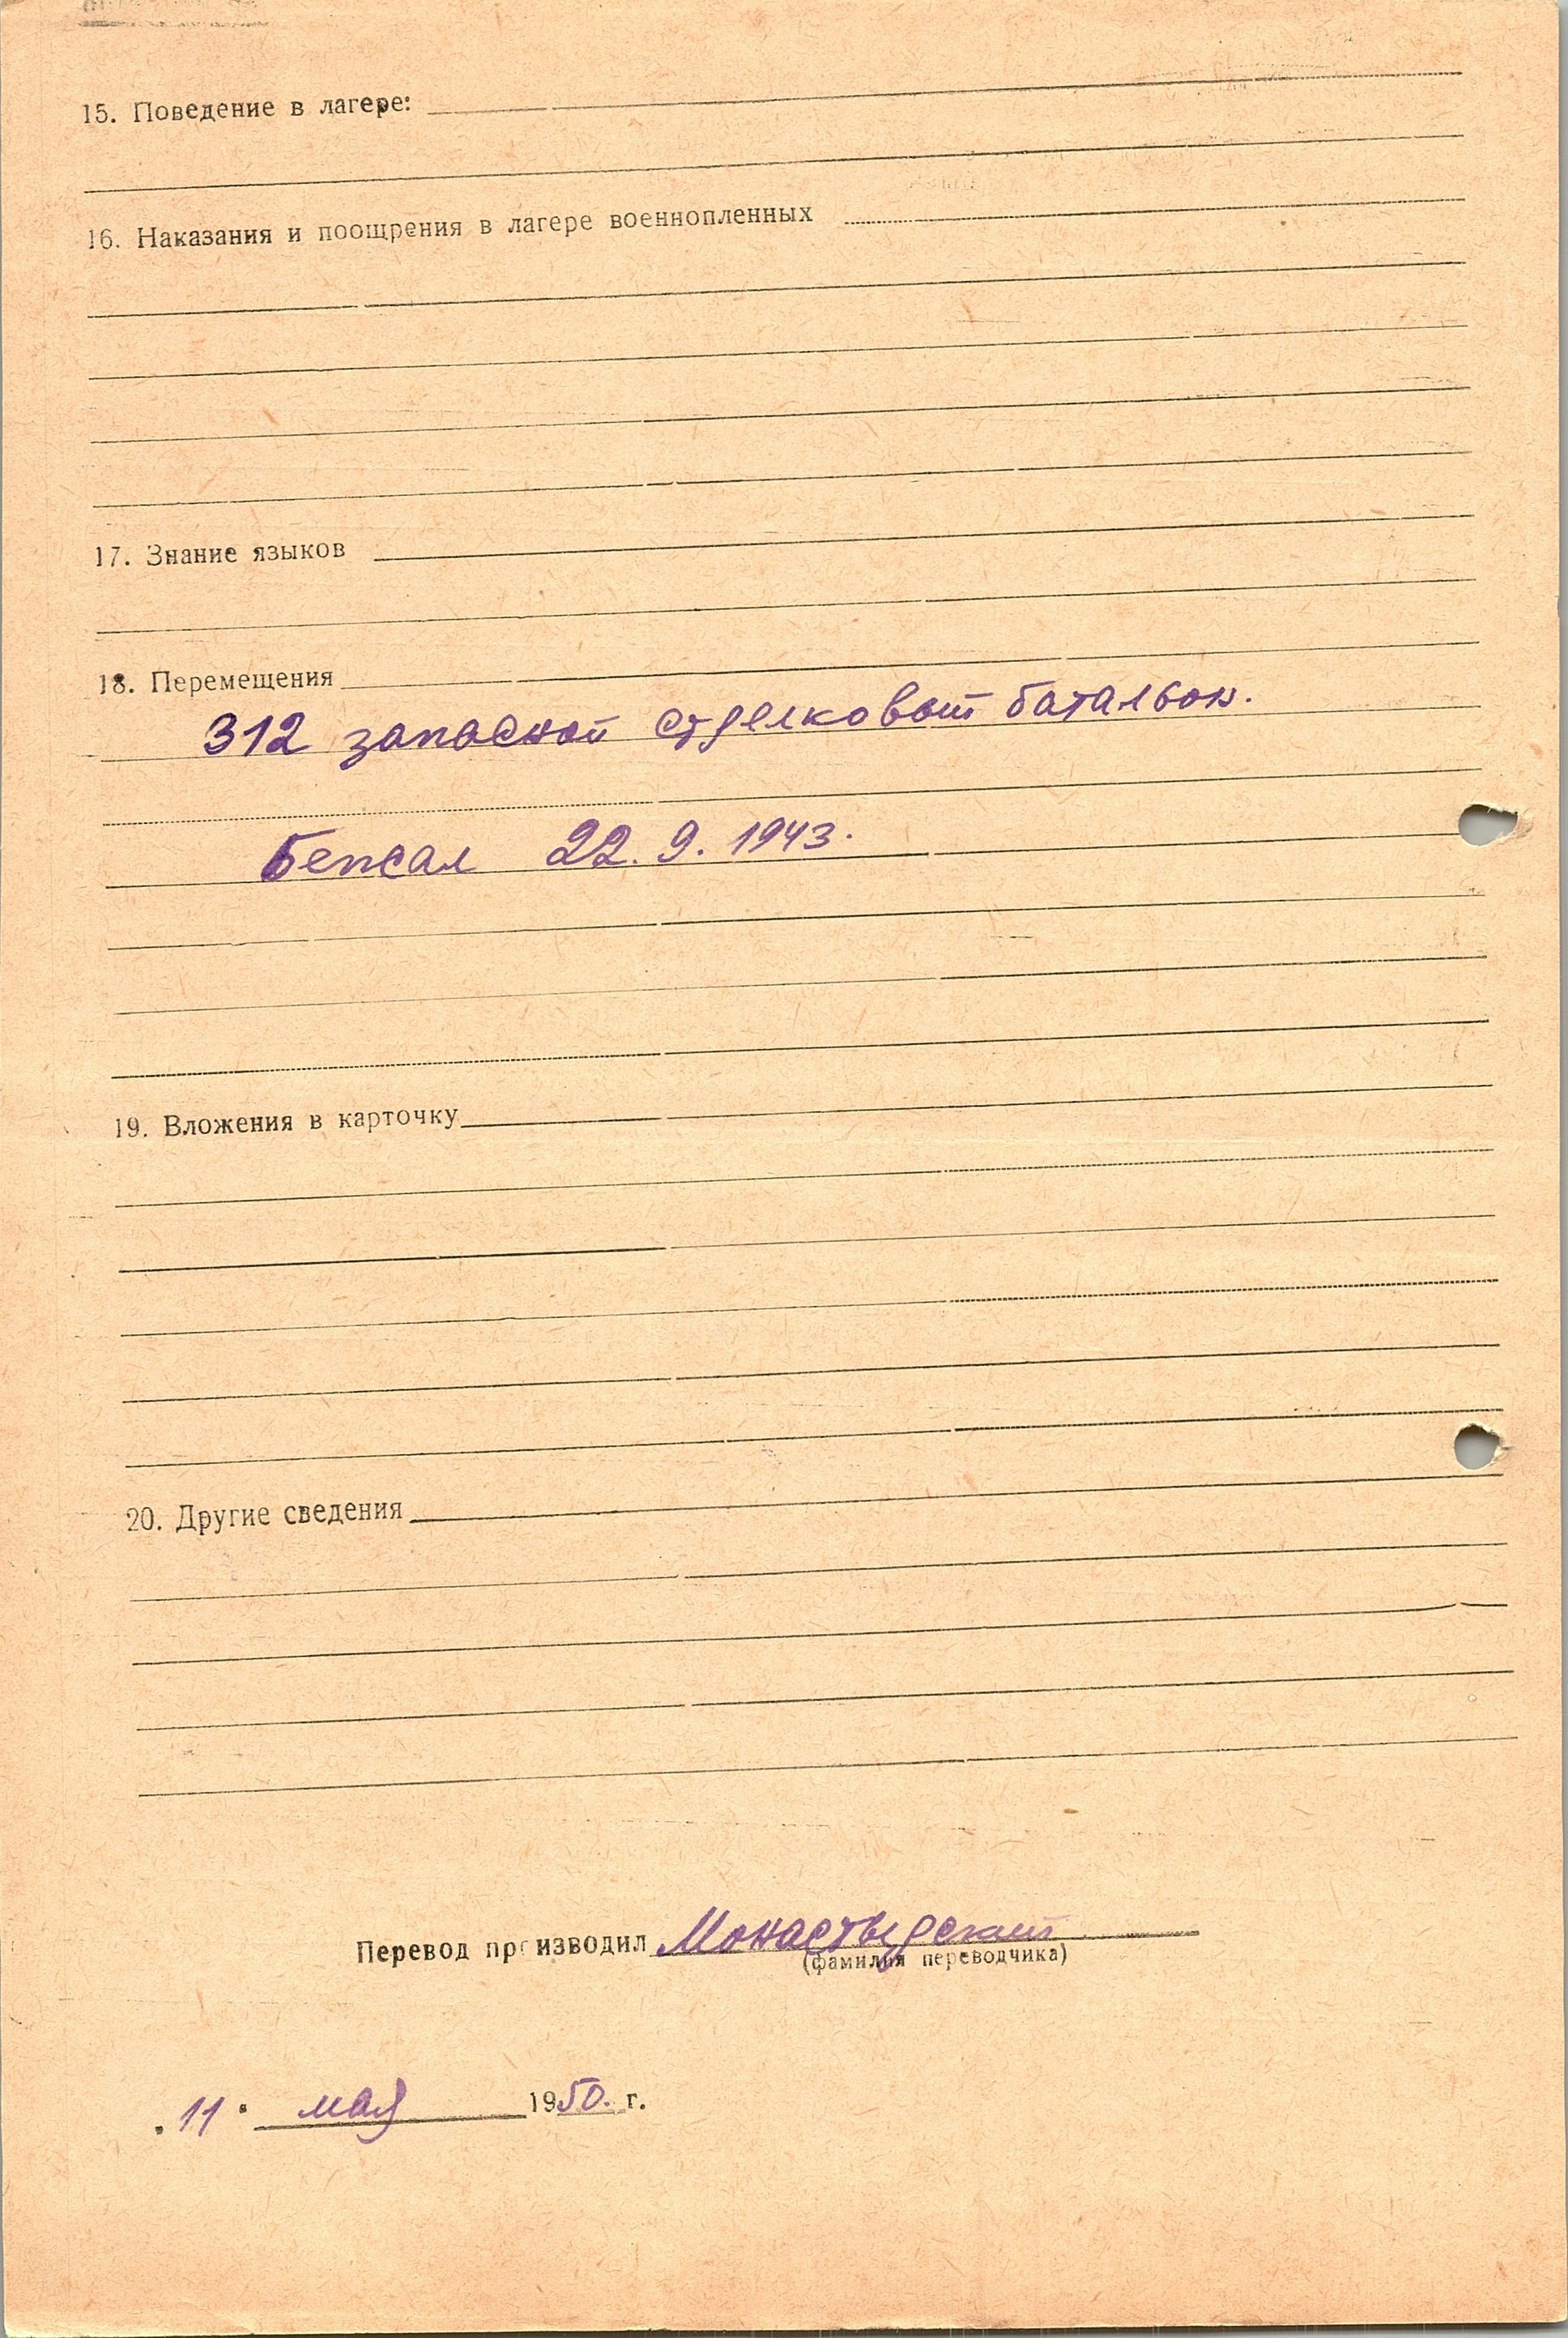 15. Поведение в лагере:
16. Наказания и поощрения в лагере военнопленных
17. Знание языков
18. Перемещения
312 запасной стрелковый батальон.
Бежал 22.9.1943.
19. Вложения в карточку
20. Другие сведения
Перевод производил Монастырский
(фамилия переводчика)
"11" мая 1950. г.